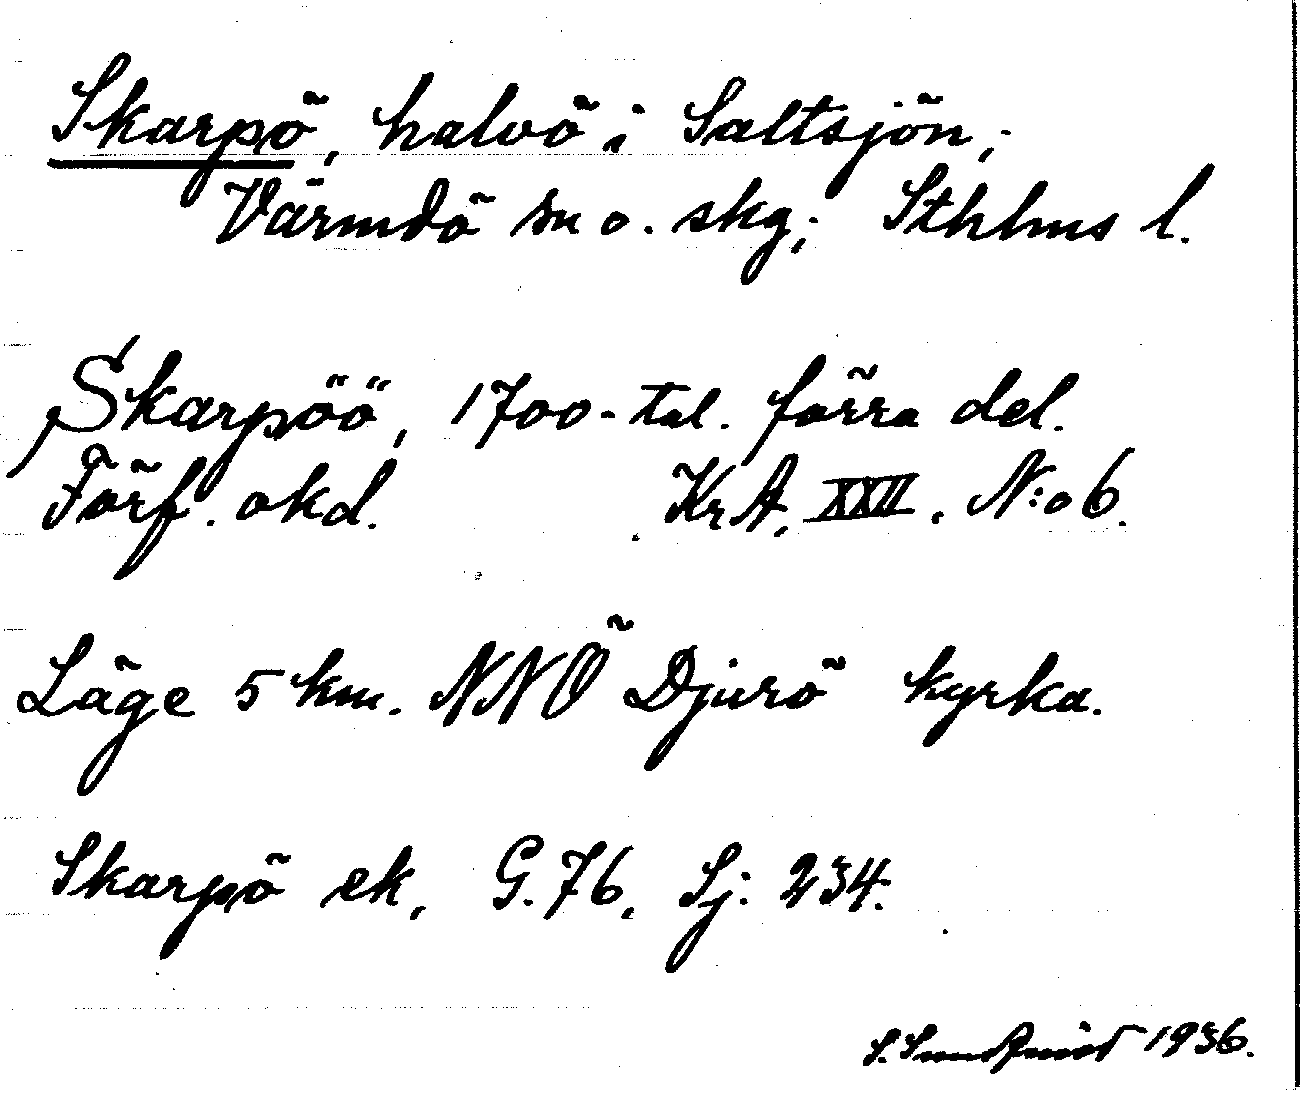 Skarpö, halvö i Saltsjön;
Värmdö sn o. skg; Sthlms l.
Skarpöö, 1700-tal. förra del.
Förf. okd. KrA, XXII. N:o 6.
Läge 5 km. NNÖ Djurö kyrka.
Skarpö ek, G.76, Sj: 234.
S. 1936.